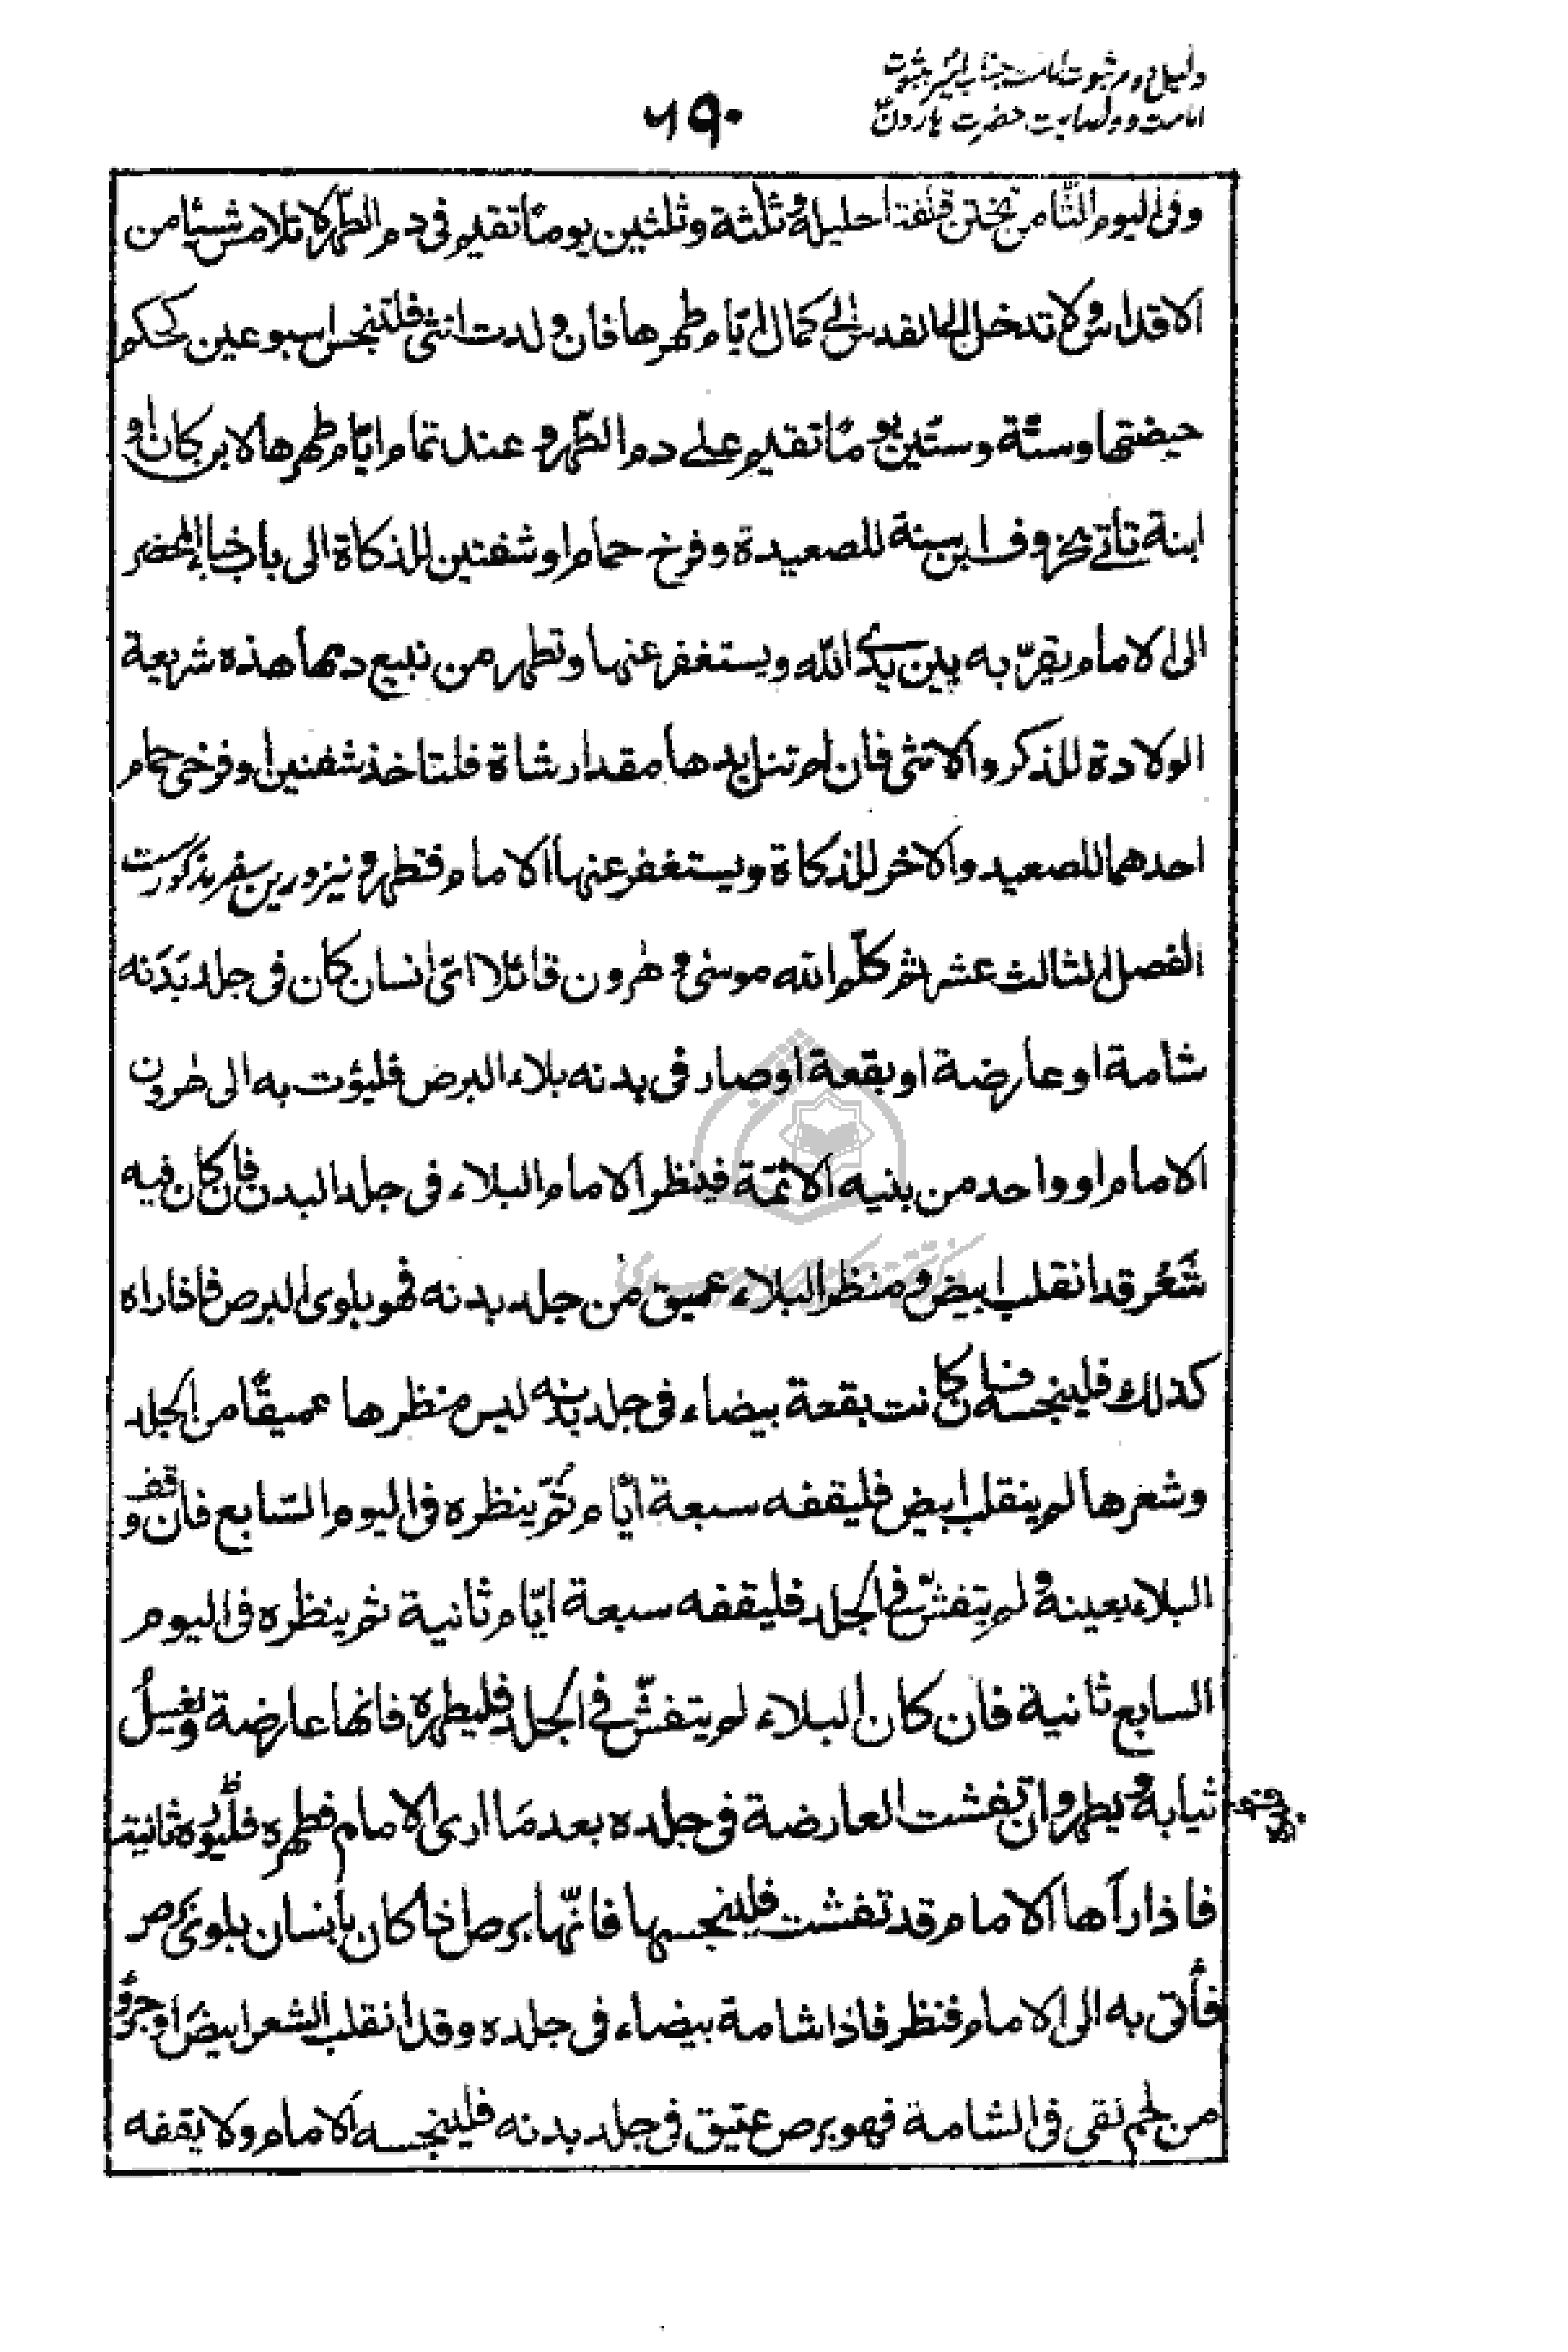 دلیل دوم ثبوت امامت جناب امیر بثبوت
امامت و وصایت حضرت هارون
۶۹۰
وفى اليوم الثّامن تختن قلفة احليله وثلثة وثلثين يومًا تقيم فى دم الطّهر لا تلامس شيئا من
الاقداس ولا تدخل الى القدس الى كمال ايّام طهرها فان ولدت انثى فلتنجس اسبوعين كحكم
حيضتها وستّة وستّين يومًا تقيم على دم الطّهر وعند تمام ايّام طهرها لابن كان او
ابنة تأتى بخروف ابن سنة للصعيدة وفرخ حمام او شفنين للذكاة الى باب خباء المحضر
الى الامام يقرّبه بين يدى الله ويستغفر عنها وتطهر من نبيع دمها هذه شريعة
الولادة للذكر والانثى فان لم تنل يدها مقدار شاة فلتاخذ شفنين او فرخى حمام
احدهما للصعيد والاخر للذكاة ويستغفر عنها الامام فتطهر و نیز درین سفر مذکورست
الفصل الثالث عشر ثم كلّم الله موسى و هرون قائلا اىّ انسان كان فى جلد بَدَنه
شامة او عارضة او بقعة او صار فى بدنه بلاء البرص فليؤت به الى هرون
الامام او واحد من بنيه الائمّة فينظر الامام البلاء فى جلد البدن فان كان فيه
شَعْر قد انقلب ابيض و منظر البلاء عميق من جلد بدنه فهو بلوى البرص فاذا راه
كذلك فلينجسه فان كانت بقعة بيضاء فى جلد بدنه ليس منظرها عميقًا من الجلد
وشعرها لم ينقلب ابيض فليقفه سبعة ايّام ثمّ ينظره فى اليوم السّابع فان وقف
البلاء بعينه و لم يتفشّ فى الجلد فليقفه سبعة ايّام ثانية ثم ينظره فى اليوم
السابع ثانية فان كان البلاء لم يتفشّ فى الجلد فليطهره فانها عارضة و يغسِلُ
ثيابه و يطهر وان تفشت العارضة فى جلده بعد مَا ارى الامام فطهره فليُره ثانية
فاذا رآها الامام قد تفشت فلينجسها فانّها برص اذا كان بانسان بلوى برص
فأتى به الى الامام فنظر فاذا شامة بيضاء فى جلده وقد انقلب الشعر ابيضَ او جزؤ
من لحم نقى فى الشامة فهو برص عتيق فى جلد بدنه فلينجسه الامام ولا يقفه